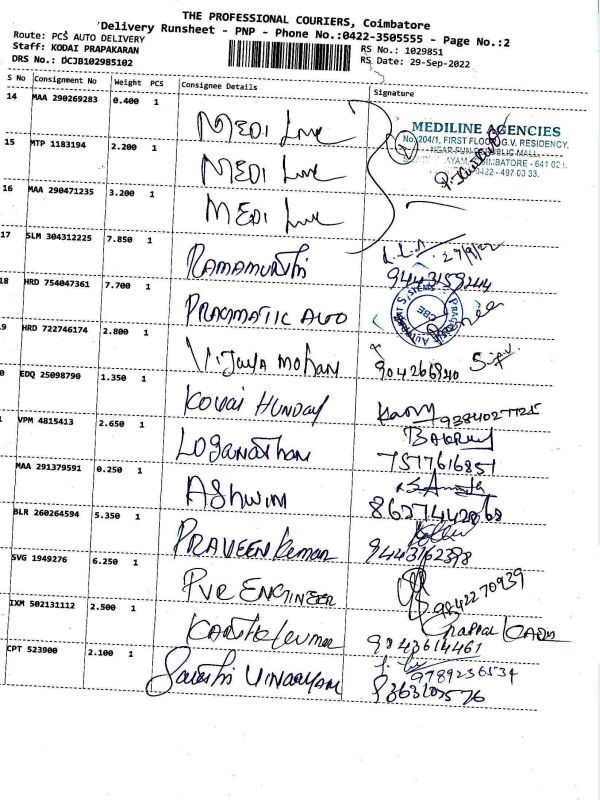 THE PROFESSIONAL COURIERS, Coimbatore
Delivery Runsheet - PNP - Phone No.:0422-3505555 - Page No.:2
Route: PCS AUTO DELIVERY
Staff: KODAI PRAPAKARAN RS No.: 1029851
DRS No.: DCJB102985102 RS Date: 29-Sep-2022
S No Consignment No Weight PCS Consignee Details Signature
14 MAA 290269283 0.400 1 MEDI Line
MEDILINE AGENCIES
No.204/1, FIRST FLOOR, G.V. RESIDENCY,
15 MTP 1183194 2.200 1 MEDI Line
16 MAA 290471235 3.200 1 MEDI Line
17 SLM 304312225 7.850 1 RAMAMURTHI
18 HRD 754047361 7.700 1 PRAGMATIC AUTO
9 HRD 722746174 2.800 1 Vijaya Mohan
0 EDQ 25098790 1.350 1 KOVAI HUNDAY
VPM 4815413 2.650 1 Loganathan
7517616851
MAA 291379591 0.250 1 ASHWIN
BLR 260264594 5.350 1 PRAVEEN Kumar
9443162398
SVG 1949276 6.250 1 PVR ENGINEER
9842270939
IXM 502131112 2.500 1 Karthikkumar
9843614461
CPT 523900 2.100 1 Sakthi VINAYAGAM
9789236534